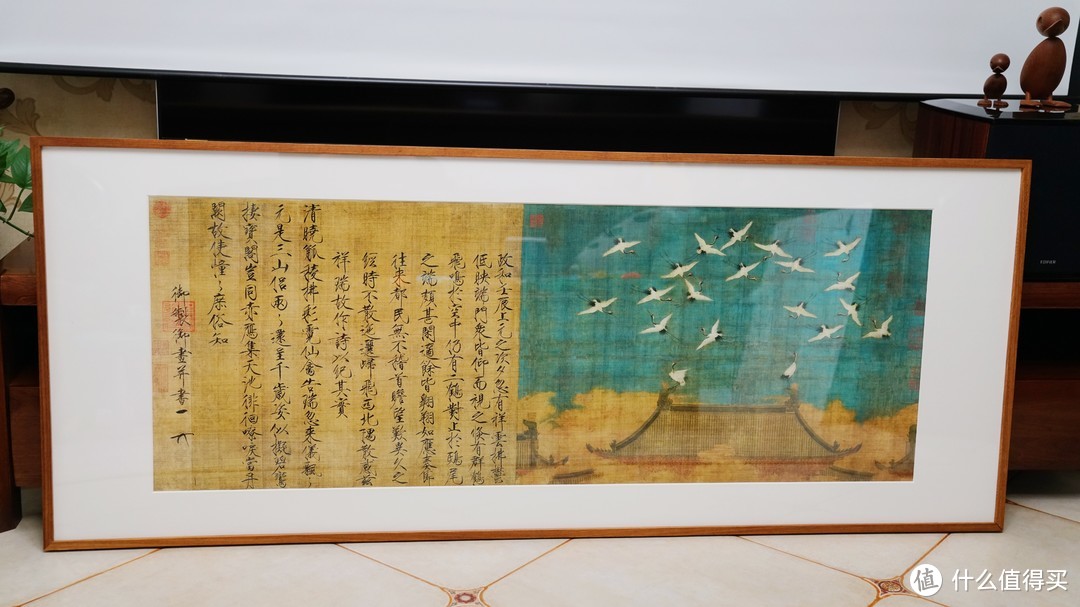 政和壬辰上元之次夕忽有祥雲拂鬱
低映端門衆皆仰而視之倏有群鶴
飛鳴於空中仍有二鶴對止於鴟尾
之端頗甚閒適餘皆翱翔如應奏節
往來都民無不稽首瞻望歎異久之
經時不散迤邐歸飛西北隅散感茲
祥瑞故作詩以紀其實
清曉觚稜拂彩霓仙禽告瑞忽來儀飄々
元是三山侶兩々還呈千歲姿似擬碧鸞
棲寶閣豈同赤雁集天池徘徊嘹唳當丹
闕故使憧々庶俗知
御製御畫并書
EDIFIER
值 什么值得买